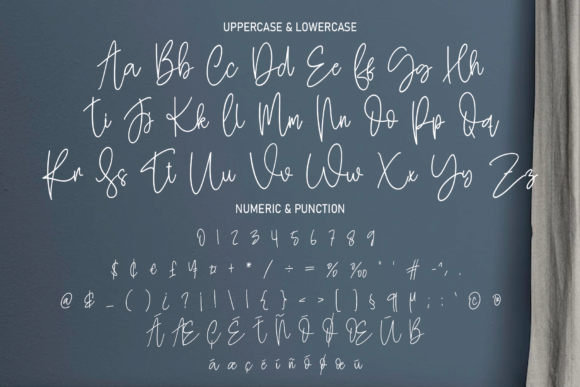 UPPERCASE & LOWERCASE
Aa Bb Cc Dd Ee Ff Gg Hh
Ii Jj Kk Ll Mm Nn Oo Pp Qq
Rr Ss Tt Uu Vv Ww Xx Yy Zz
NUMERIC & PUNCTION
0 1 2 3 4 5 6 7 8 9
$ ¢ € £ ¥ ¤ + * / ÷ = % ‰ " ' # - ^ , .
@ & _ ( ) ¿ ? ¡ ! \ | { } < > [ ] § ¶ µ ; : ` © ®
Ã Æ Ç É Ï Ñ Õ Ø Œ Ú ß
ã æ ç ë í ñ õ ø œ ú